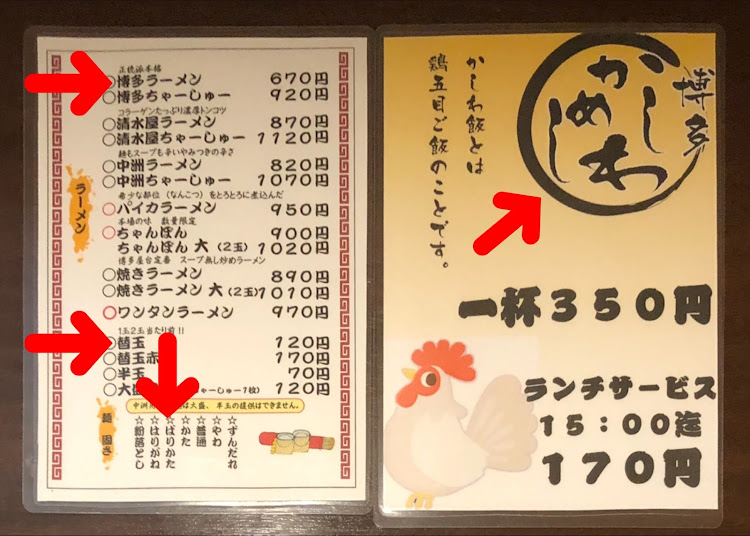 正統派本格
○博多ラーメン 670円
○博多ちゃーしゅー 920円
コラーゲンたっぷり濃厚トンコツ
○清水屋ラーメン 870円
○清水屋ちゃーしゅー 1120円
麺もスープも辛いやみつきの辛さ
○中洲ラーメン 820円
○中洲ちゃーしゅー 1070円
希少な部位（なんこつ）をとろとろに煮込んだ
○パイカラーメン 950円
本場の味 数量限定
○ちゃんぽん 900円
ちゃんぽん 大（2玉）1020円
博多屋台定番 スープ無し炒めラーメン
○焼きラーメン 890円
○焼きラーメン 大（2玉）1010円
○ワンタンラーメン 970円
1玉2玉当たり前!!
○替玉 120円
○替玉赤 170円
○半玉 70円
○大 ゃーしゅー1枚) 120円
ラーメン
中洲 は大盛、半玉の提供はできません。
麺 固さ
☆ずんだれ
☆やわ
☆普通
☆かた
☆ばりかた
☆はりがね
☆粉落とし
博多
かしわめし
かしわ飯とは
鶏五目ご飯のことです。
一杯350円
ランチサービス
15：00迄
170円